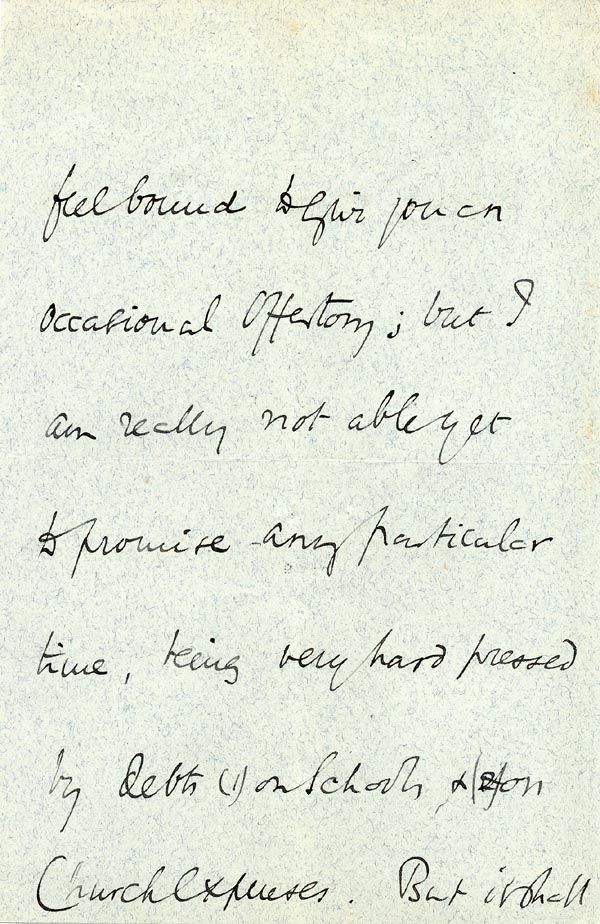 feel bound to give you an
occasional Offertory; but I
am really not able yet
to promise any particular
time, being very hard pressed
by debts (1) on Schools, & (2) on
Church Expenses. But it shall